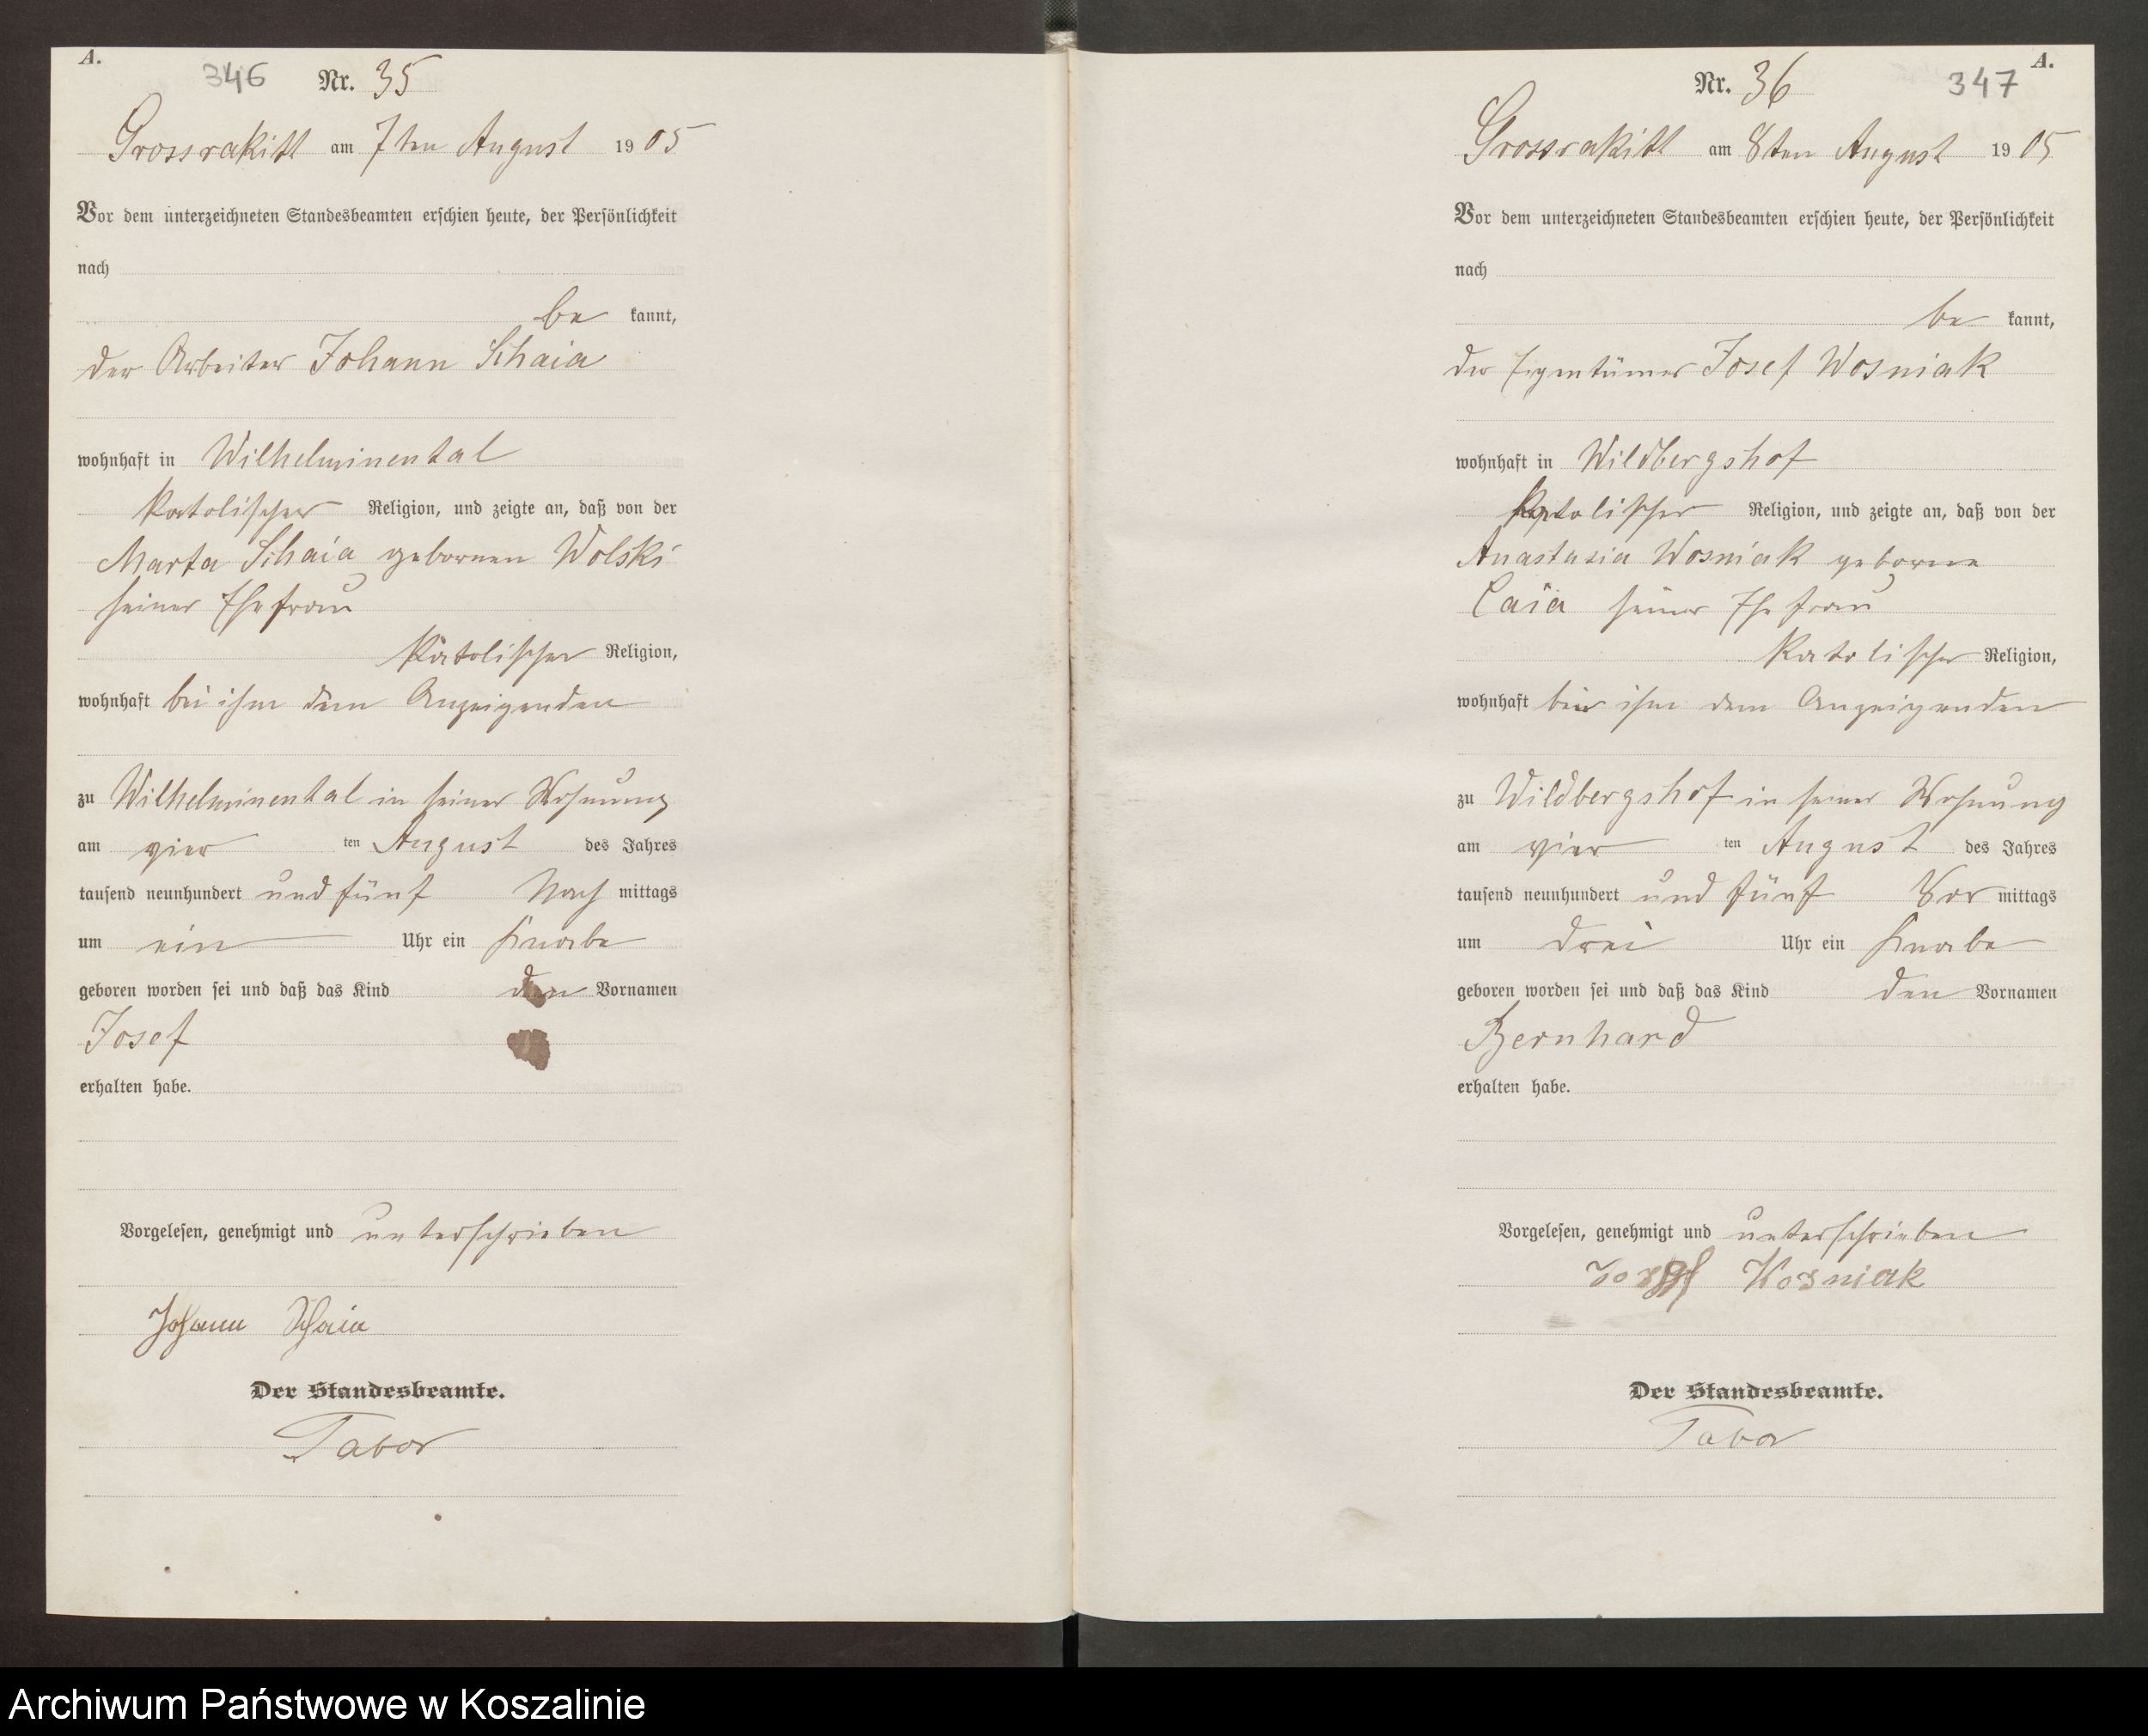 A.
346 Nr. 35
Grossrakitt am 7ten August 1905
Vor dem unterzeichneten Standesbeamten erschien heute, der Persönlichkeit
nach
be kannt,
der Arbeiter Johann Schaia
wohnhaft in Wilhelminental
katolischer Religion, und zeigte an, daß von der
Marta Schaia gebornen Wolski
seiner Ehefrau
katolischer Religion,
wohnhaft bei ihm dem Anzeigenden
zu Wilhelminental in seiner Wohnung
am vier ten August des Jahres
tausend neunhundert und fünf Nach mittags
um ein Uhr ein Knabe
geboren worden sei und daß das Kind den Vornamen
Josef
erhalten habe.
Vorgelesen, genehmigt und unterschrieben
Johann Schaia
Der Standesbeamte.
Tabor
A.
Nr. 36 347
Grossrakitt am 8ten August 1905
Vor dem unterzeichneten Standesbeamten erschien heute, der Persönlichkeit
nach
be kannt,
der Eigentümer Josef Wosniak
wohnhaft in Wildbergshof
katolischer Religion, und zeigte an, daß von der
Anastasia Wosniak geborne
Caia seiner Ehefrau
katolischer Religion,
wohnhaft bei ihm dem Anzeigenden
zu Wildbergshof in seiner Wohnung
am vier ten August des Jahres
tausend neunhundert und fünf Vor mittags
um drei Uhr ein Knabe
geboren worden sei und daß das Kind den Vornamen
Bernhard
erhalten habe.
Vorgelesen, genehmigt und unterschrieben
Josef Wosniak
Der Standesbeamte.
Tabor
Archiwum Państwowe w Koszalinie